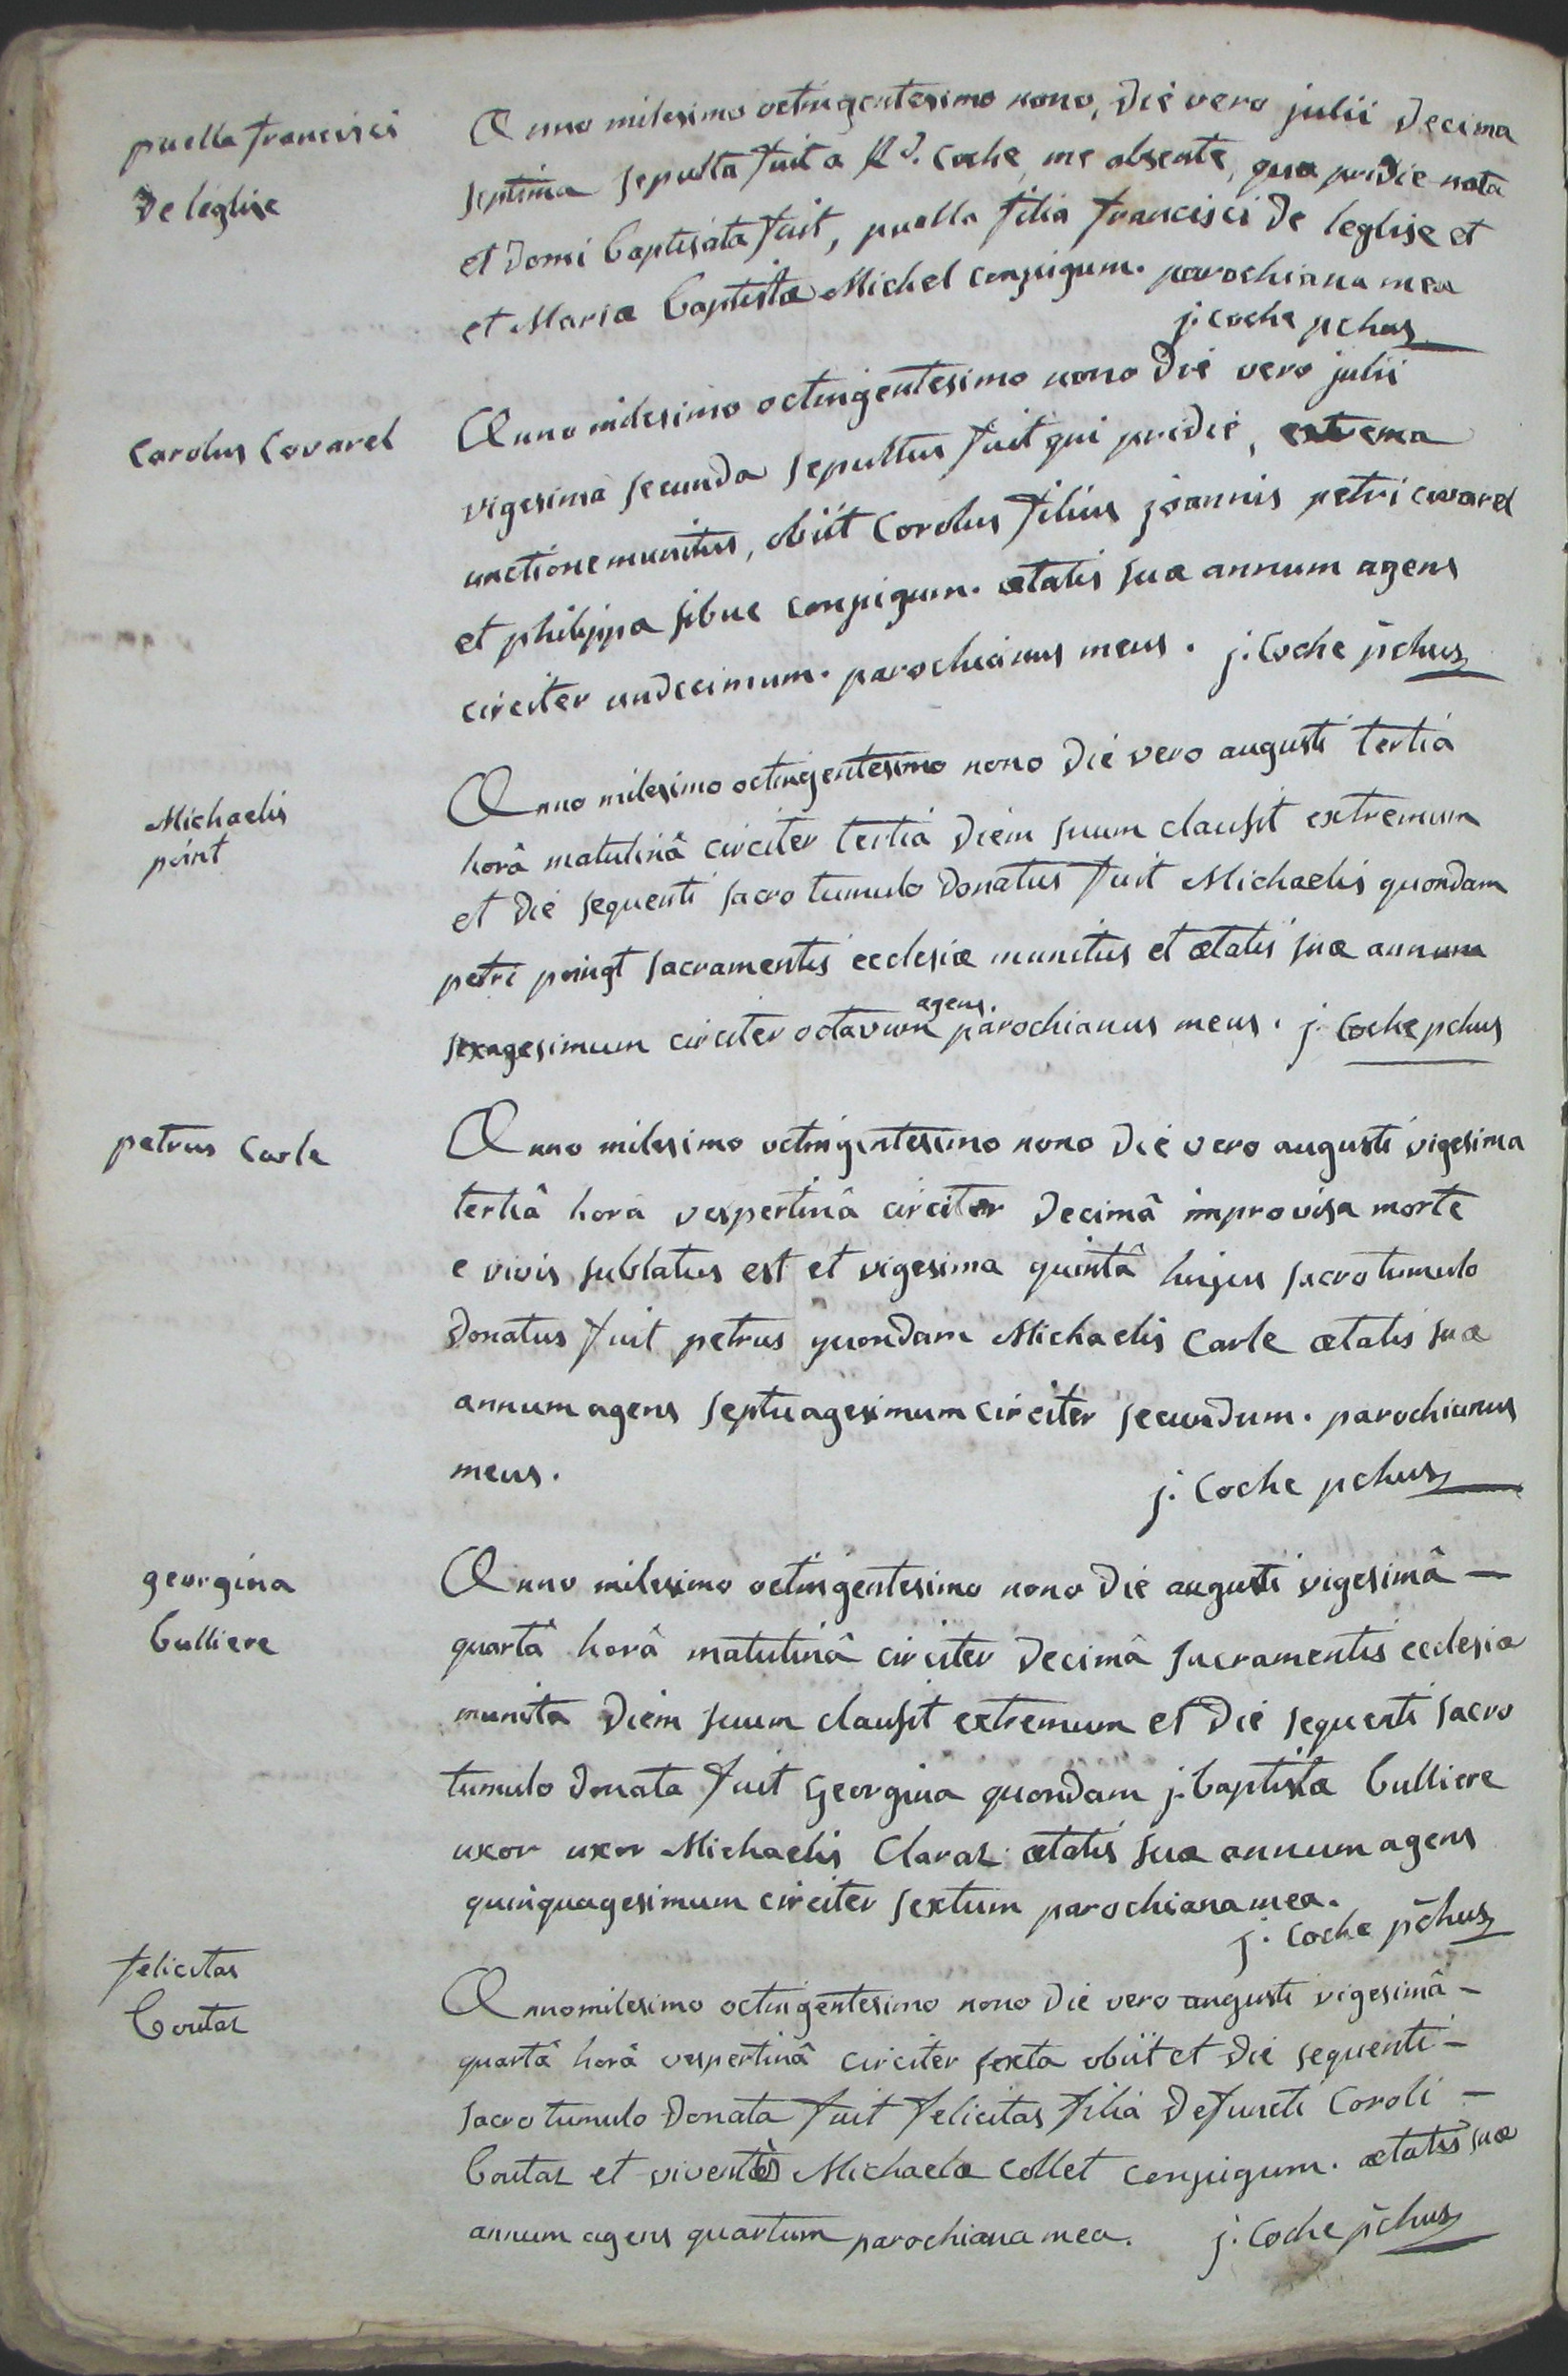 puella francisci
De léglise
Anno milesimo octingentesimo nono, die vero julii decima
septima sepulta fuit a Rd. Coche, me absente, quæ pridie nata
et domi baptisata fuit, puella filia francisci De leglise et
et Mariæ baptistæ Michel conjugum. parochiana mea
j. coche pchus
Carolus Covarel
Anno milesimo octingentesimo nono die vero julii
vigesima secunda sepultus fuit qui pridie, extrema
unctione munitus, obiit Carolus filius joannis petri covarel
et philippa sibue conjugum. ætatis suæ annum agens
circiter undecimum. parochianus meus. j. Coche pchus
Michaelis
point
Anno milesimo octingentesimo nono die vero augusti tertia
horâ matutinâ circiter tertia diem suum clausit extremum
et die sequenti sacro tumulo donatus fuit Michaelis quondam
petri poingt sacramentis ecclesiæ munitus et ætatis suæ annum
agens.
sexagesimum circiter octavum parochianus meus. j. Coche pchus
petrus Carle
Anno milesimo octingentesimo nono die vero augusti vigesima
tertiâ hora vespertinâ circiter decimâ improvisa morte
e vivis sublatus est et vigesima quintâ hujus sacro tumulo
donatus fuit petrus quondam Michaelis Carle ætatis suæ
annum agens septuagesimum circiter secundum. parochianus
meus.
j. Coche pchus
georgina
bulliere
Anno milesimo octingentesimo nono die augusti vigesimâ –
quartâ horâ matutinâ circiter decimâ sacramentis ecclesiæ
munita diem suum clausit extremum et die sequenti sacro
tumulo donata fuit georgina quondam j. baptistæ bulliere
uxor uxor Michaelis Claraz ætatis suæ annum agens
quinquagesimum circiter sextum parochiana mea.
j. Coche pchus
felicitas
Coutaz
Anno milesimo octingentesimo nono die vero augusti vigesimâ –
quartâ horâ vespertinâ circiter sexta obiit et die sequenti –
sacro tumulo donata fuit felicitas filia defuncti Caroli –
Coutaz et viventis Michaelæ Collet conjugum. ætatis suæ
annum agens quartum parochiana mea. j. Coche pchus